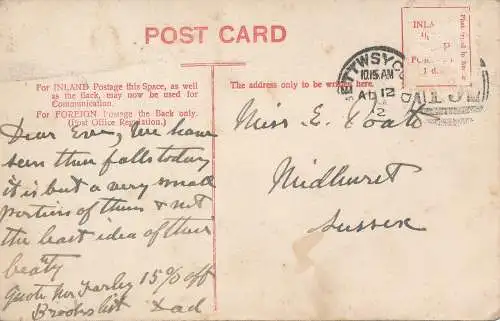 POST CARD
For INLAND Postage this Space, as well
as the Back, may now be used for
Communication.
For FOREIGN Postage the Back only.
(Post Office Regulation.)
The address only to be written here.
BETTWSYCO
10.15 AM
12
2
INLA
FOR
1 d.
Dear Eve, We have
seen these falls today
it is but a very small
portion of them & not
the least idea of their
beauty
Quote Mr Farley 15% off
Brooks list Dad
Miss E.
Midhurst
Sussex